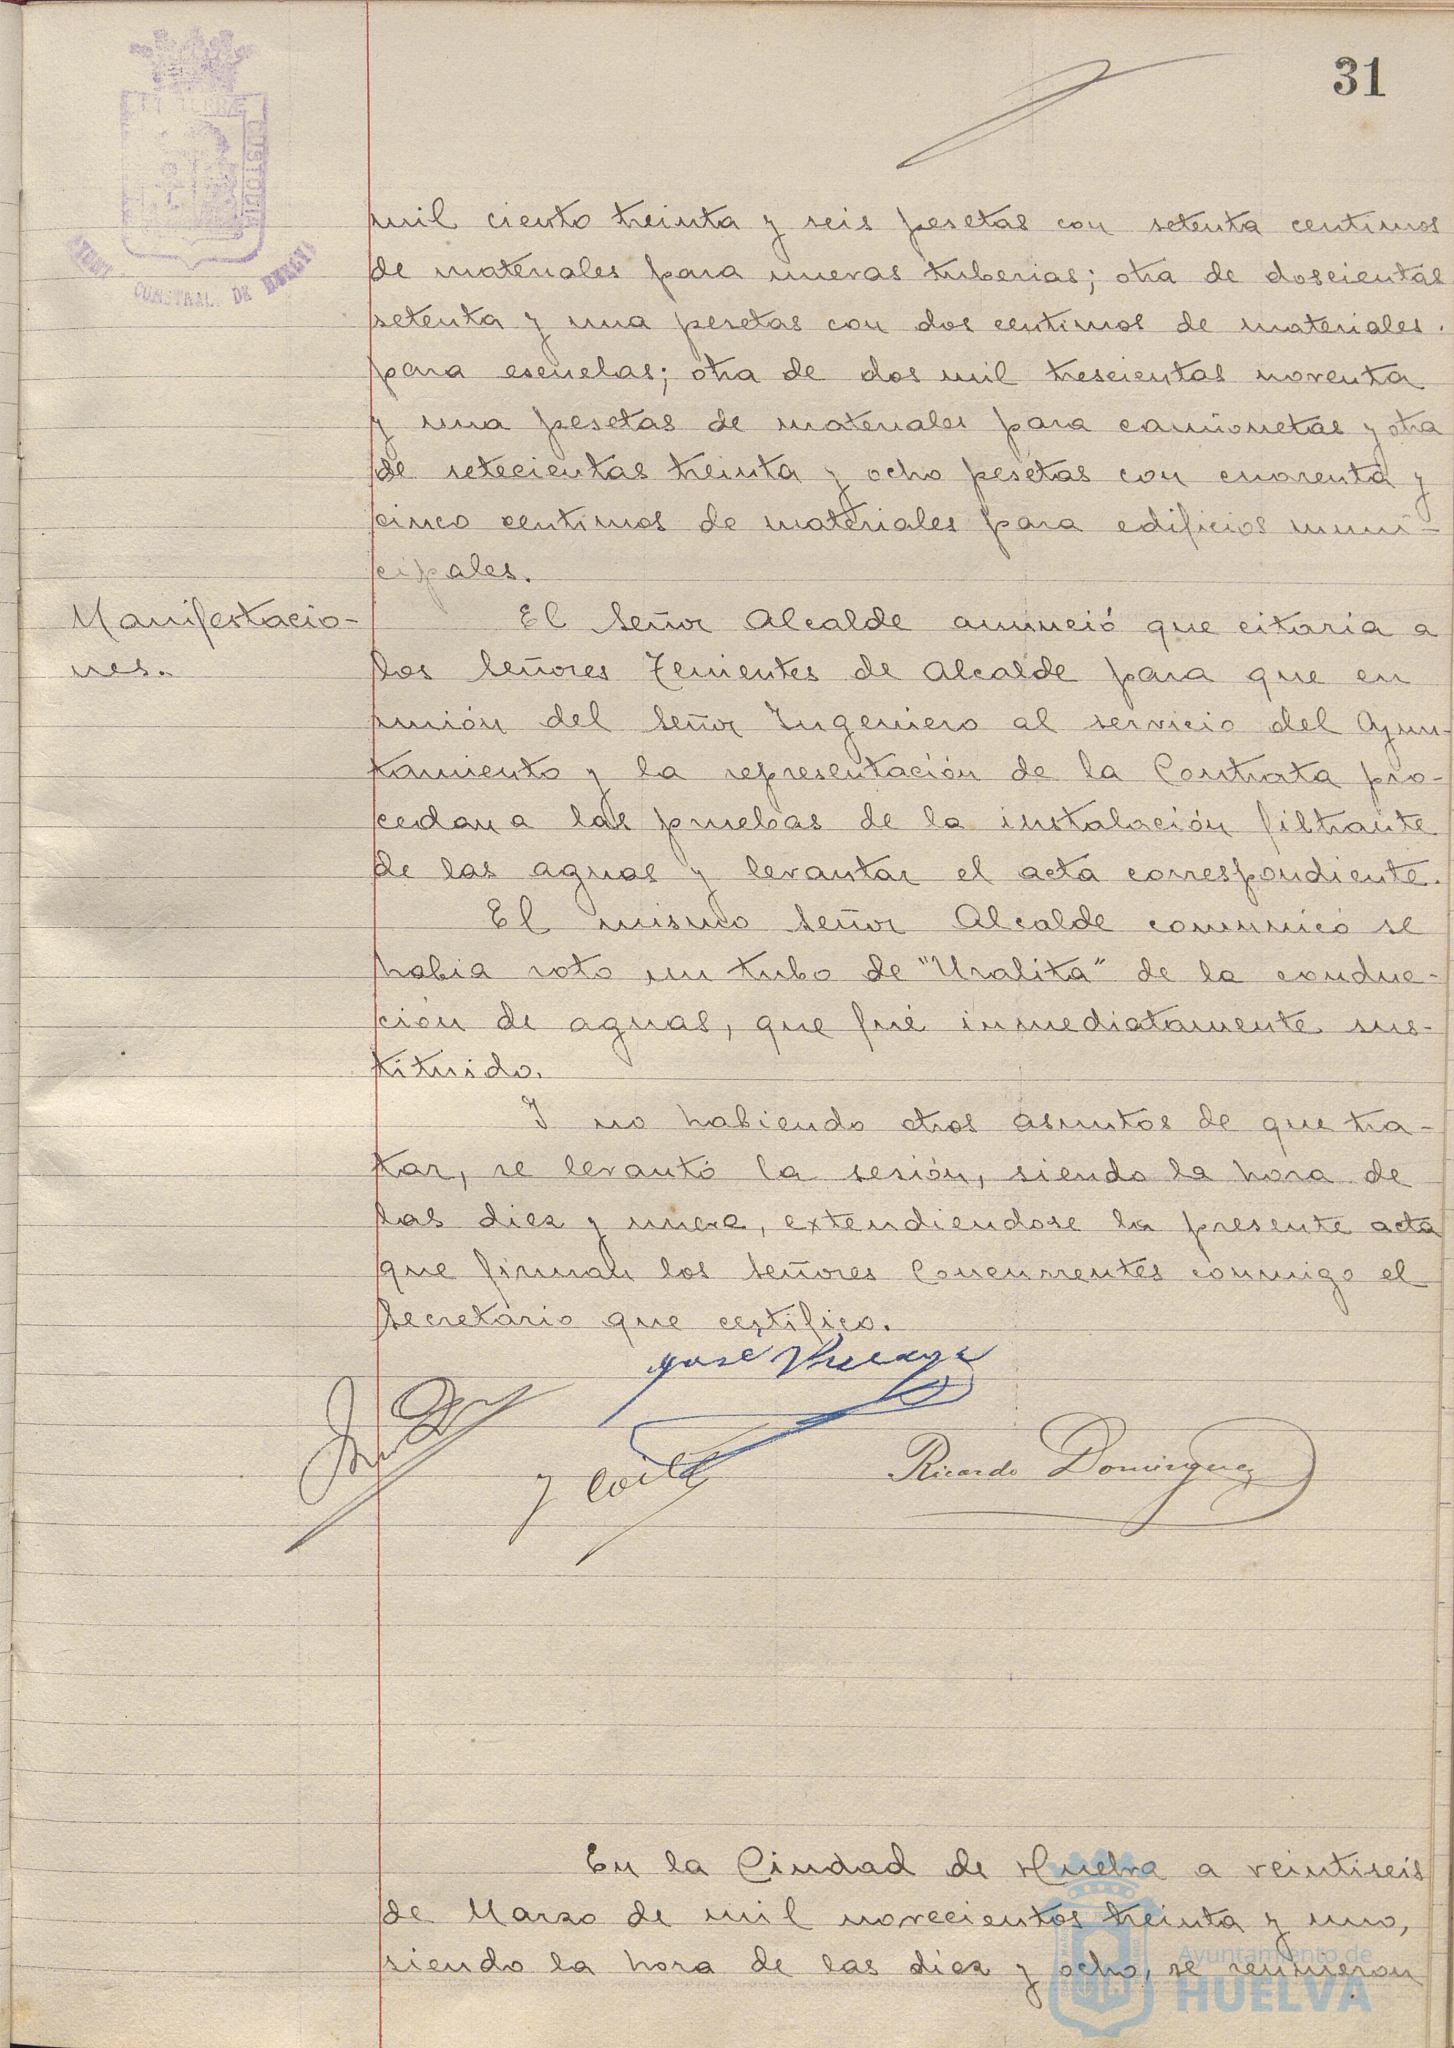 31
PORTUS TERRAE CUSTODIA
CONSTNAL. DE HUELVA
mil ciento treinta y seis pesetas con setenta centimos
de materiales para nuevas tuberias; otra de doscientas
setenta y una pesetas con dos centimos de materiales
para escuelas; otra de dos mil trescientas noventa
y una pesetas de materiales para camionetas y otra
de setecientas treinta y ocho pesetas con cuarenta y
cinco centimos de materiales para edificios muni-
cipales.
Manifestacio-
nes.
El Señor Alcalde anunció que citaria a
los Señores Tenientes de Alcalde para que en
unión del Señor Ingeniero al servicio del Ayun-
tamiento y la representación de la Contrata pro-
cedan a las pruebas de la instalación filtrante
de las aguas y levantar el acta correspondiente.
El mismo Señor Alcalde comunicó se
habia roto un tubo de "Uralita" de la conduc-
ción de aguas, que fué inmediatamente sus-
tituido.
Y no habiendo otros asuntos de que tra-
tar, se levantó la sesión, siendo la hora de
las diez y nueve, extendiendose la presente acta
que firman los Señores Concurrentes conmigo el
Secretario que certifico.
José
y Coil
Ricardo Dominguez
En la Ciudad de Huelva a veintiseis
de Marzo de mil novecientos treinta y uno,
siendo la hora de las diez y ocho, se reunieron
Ayuntamiento de
HUELVA